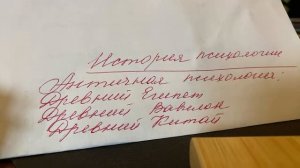 История психологии
Античная психология:
Древний Египет
Древний Вавилон
Древний Китай